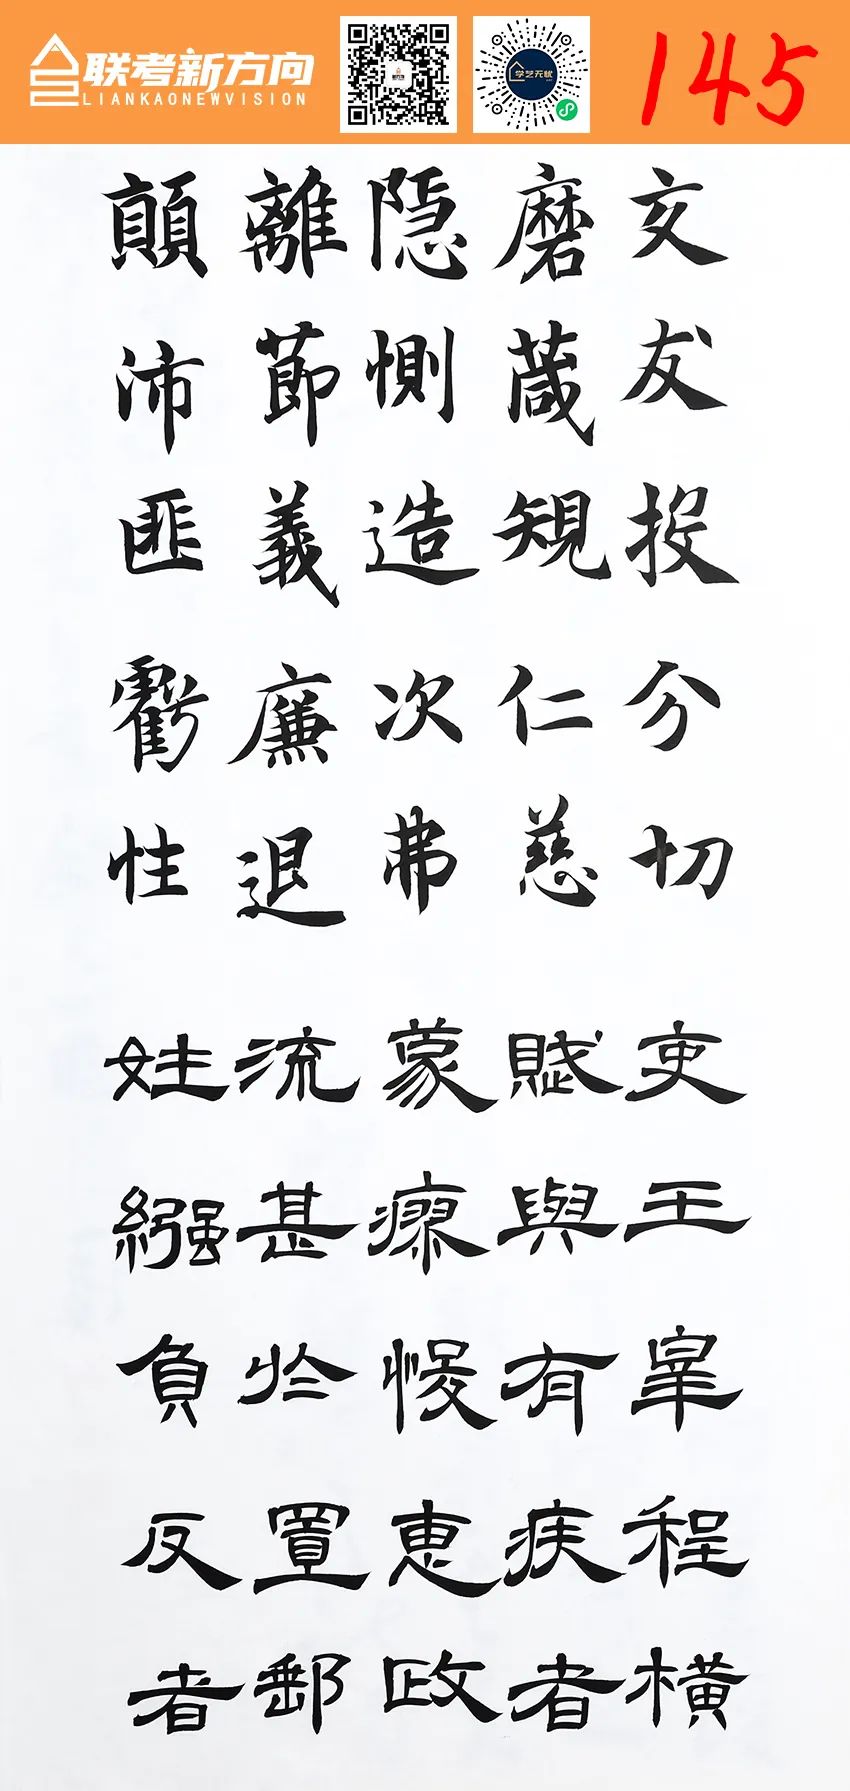 联考新方向
LIANKAONEWVISION
学艺无忧
145
交友投分切
磨葴規仁慈
隐惻造次弗
離莭義廉退
顛沛匪虧性
吏王皋程橫
賦與有疾者
蒙瘳悛惠政
流甚於置郵
姓繦負反者